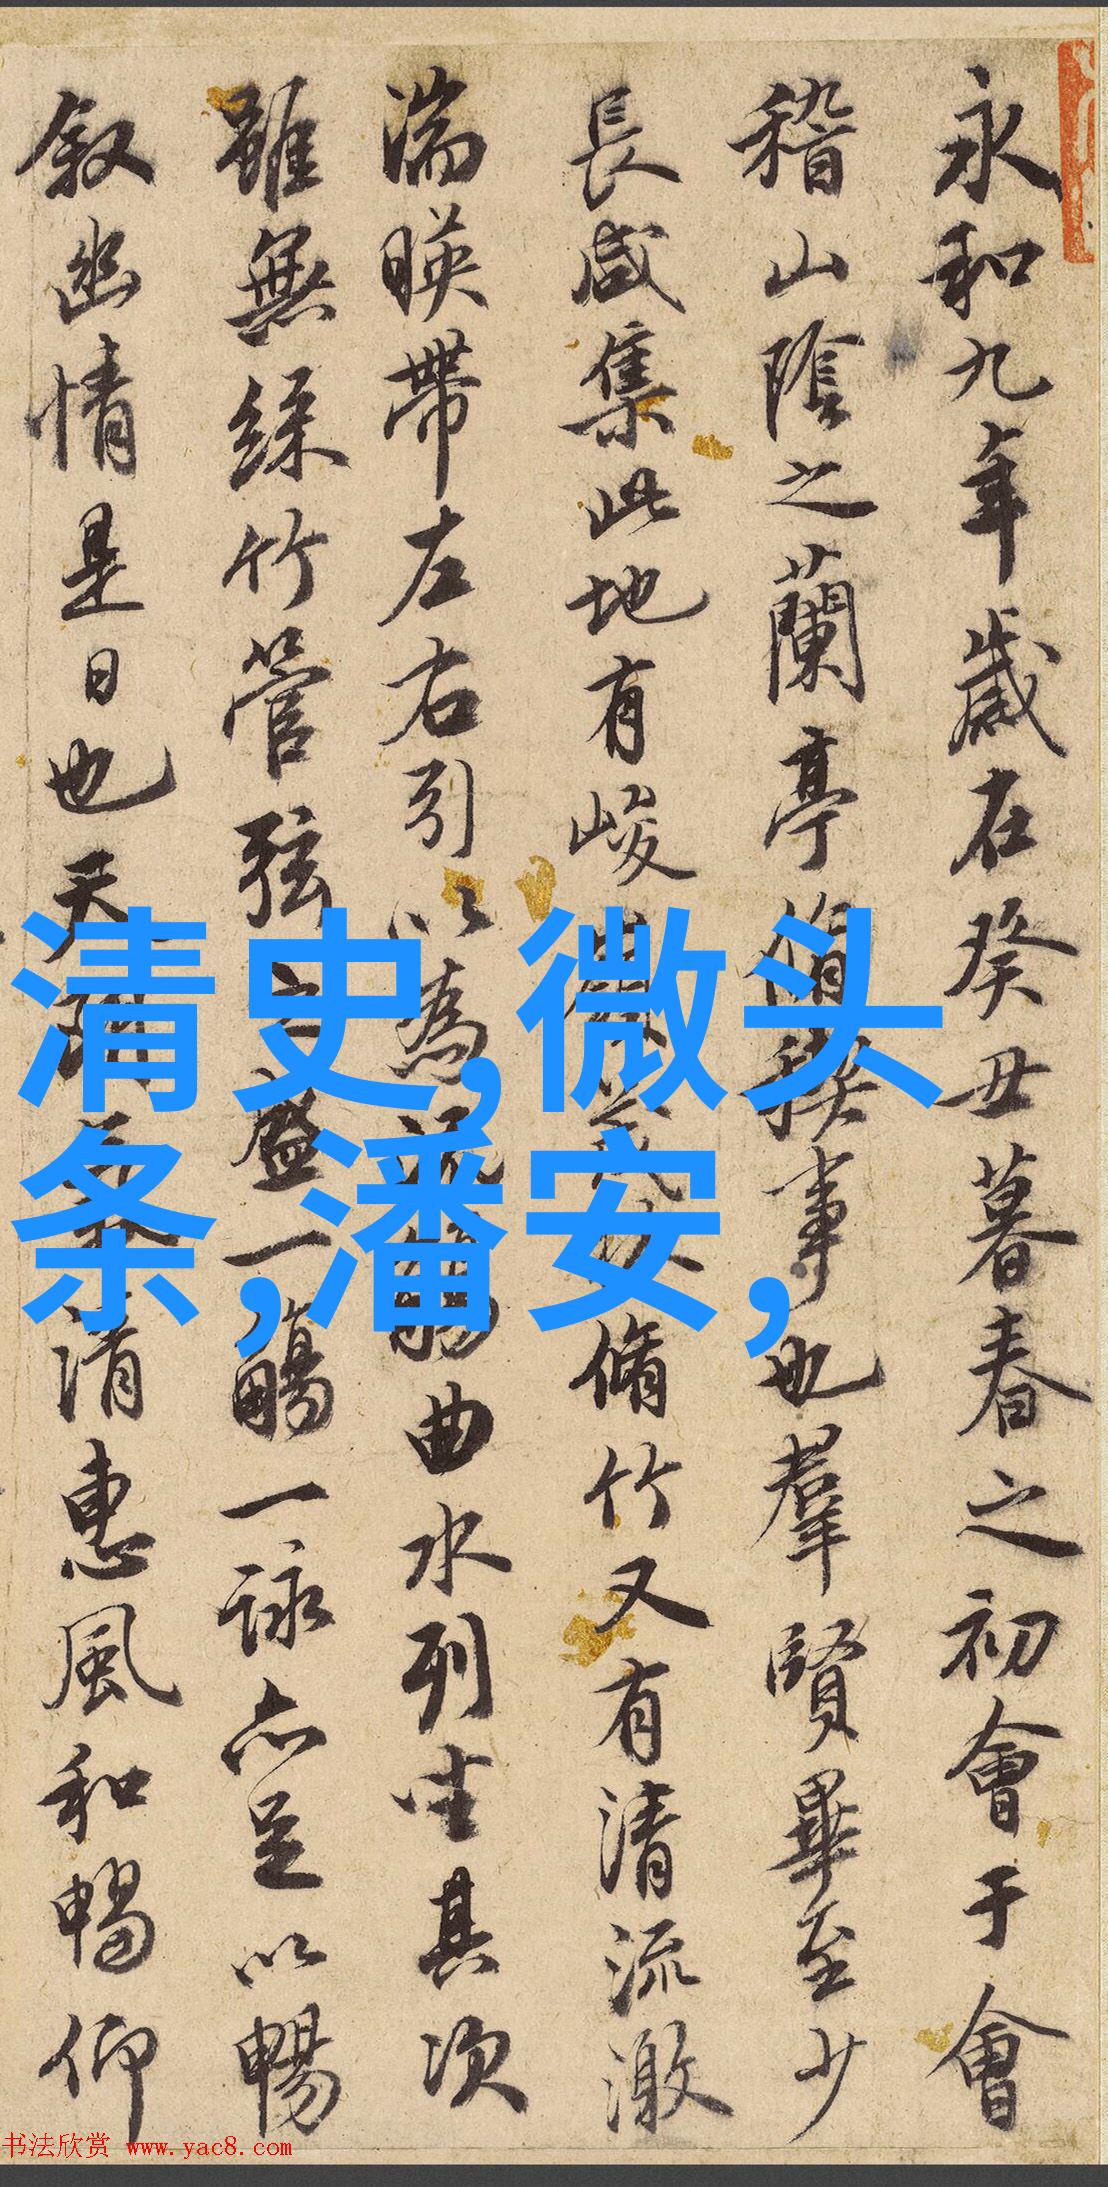 永和九年歲在癸丑暮春之初會于會
稽山陰之蘭亭脩禊事也羣賢畢至少
長咸集此地有峻領茂林脩竹又有清流激
湍暎帶左右引以為流觴曲水列坐其次
雖無絲竹管弦之盛一觴一詠亦足以暢
叙幽情是日也天朗氣清惠風和暢仰
清史,微头
条,潘安,
书法欣赏 www.yac8.com